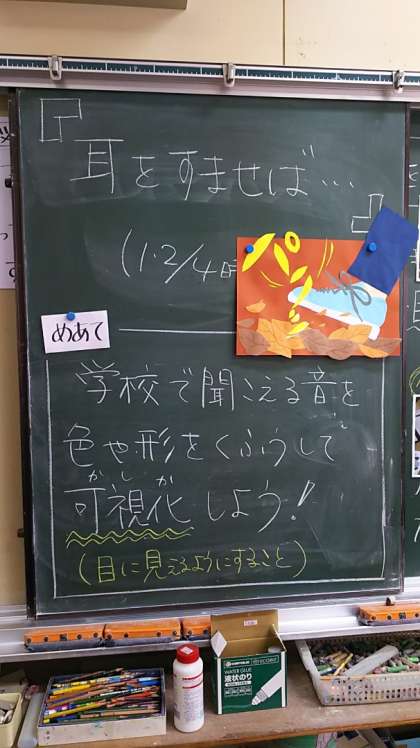 『耳をすませば…』
(1・2/4時
めあて
学校で聞こえる音を
色や形をくふうして
可視化しよう!
かしか
(目に見えるようにすること)
WATER GLUE
液状のり